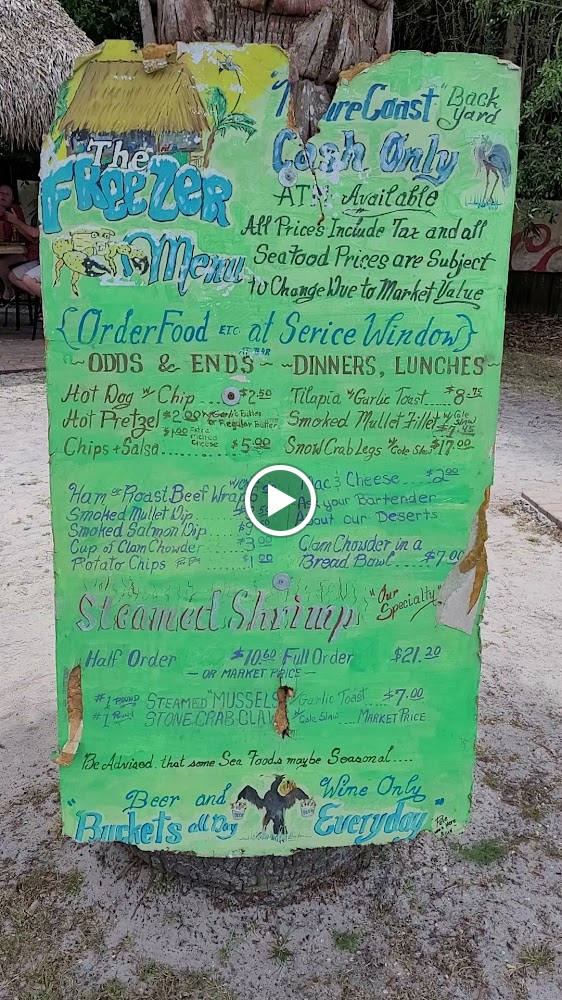 The
Freezer
Menu
Coast "Back Yard
Cash Only
Available
All Prices Include Tax and all
Seafood Prices are Subject
to Change Due to Market Value
{Order Food ETC. at Serice Window}
~ODDS & ENDS~ ~DINNERS, LUNCHES~
Hot Dog w/ Chip .... $2.50
Hot Pretzel $2.00 w/ Garlic Butter or Regular Butter
$1.00 Extra Melted Cheese
Chips + Salsa ...... $5.00
Tilapia w/ Garlic Toast..... $8.75
Smoked Mullet Fillet w/ Cole Slaw
Snow Crab Legs w/ Cole Slaw $17.00
Ham or Roast Beef Wrap
Smoked Mullet Dip
Smoked Salmon Dip
Cup of Clam Chowder
Potato Chips $1.00
& Cheese.... $2.00
your Bartender
About our Deserts
Clam Chowder in a
Bread Bowl.... $7.00
Steamed Shrimp "Our Specialty"
Half Order $10.60 Full Order $21.20
— OR MARKET PRICE —
#1 POUND STEAMED "MUSSELS Garlic Toast ... $7.00
#1 Pound STONE CRAB CLAW w/ Cole Slaw ..... MARKET PRICE
Be Advised that some Sea Foods maybe Seasonal....
Beer and Wine Only
"Buckets all Day Everyday"